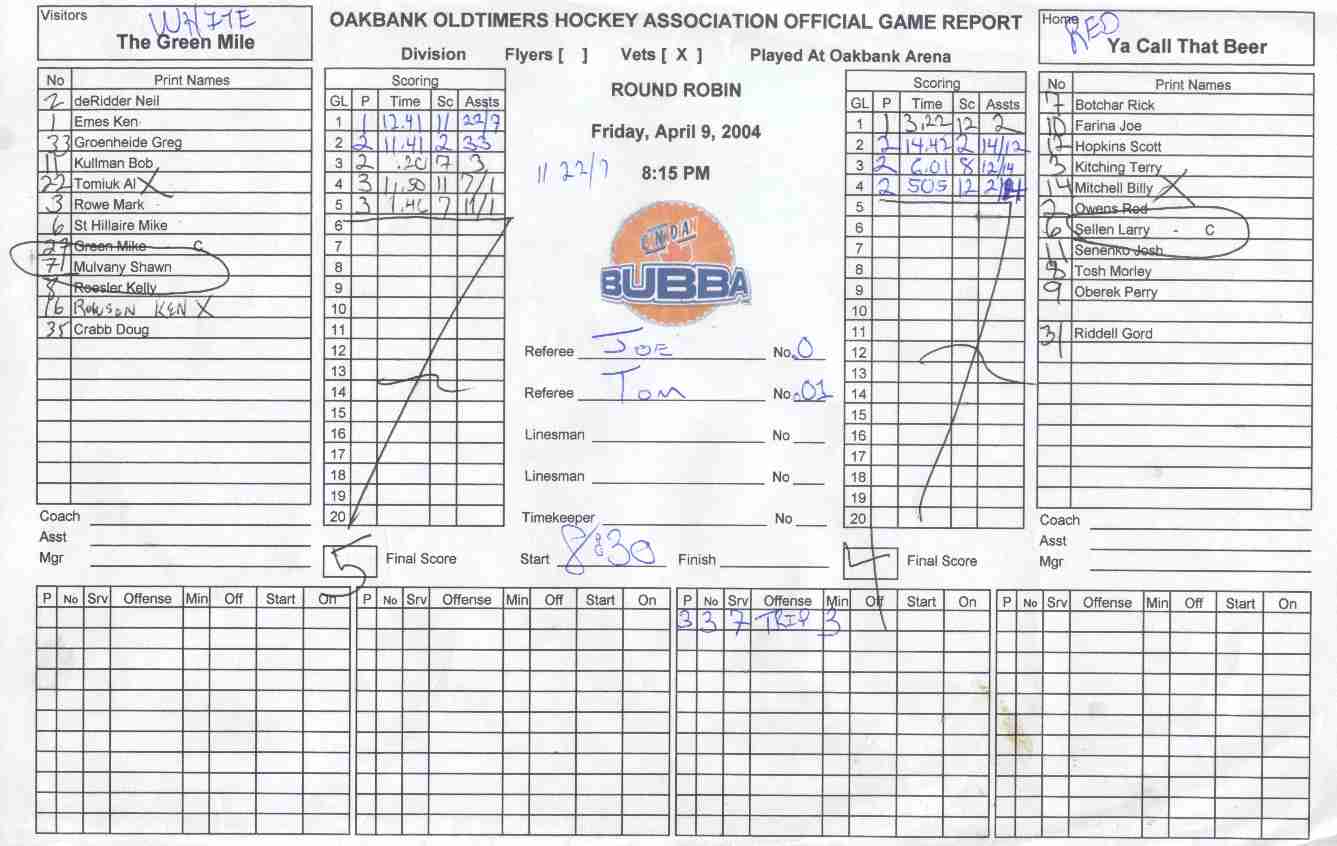 Visitors WHITE
The Green Mile
OAKBANK OLDTIMERS HOCKEY ASSOCIATION OFFICIAL GAME REPORT
Division Flyers [ ] Vets [ X ] Played At Oakbank Arena
Home RED
Ya Call That Beer
No Print Names
2 deRidder Neil
1 Emes Ken
33 Groenheide Greg
11 Kullman Bob
22 Tomiuk Al X
3 Rowe Mark
6 St Hillaire Mike
27 Green Mike - C
71 Mulvany Shawn
8 Roesler Kelly
16 ROWSON KEN X
35 Crabb Doug
Coach
Asst
Mgr
Scoring
GL P Time Sc Assts
1 1 12.41 11 22/7
2 2 11.41 2 33
3 2 .20 7 3
4 3 11.50 11 7/1
5 3 1.46 7 11/1
6
7
8
9
10
11
12
13
14
15
16
17
18
19
20
5 Final Score
ROUND ROBIN
Friday, April 9, 2004
11 22/7 8:15 PM
CNDA
BUBBA
Referee JOE No .0
Referee Tom No .01
Linesman No
Linesman No
Timekeeper No
Start 8:30 Finish
Scoring
GL P Time Sc Assts
1 1 3.22 12 2
2 2 14.42 2 14/12
3 2 6.01 8 12/14
4 2 505 12 2/14
5
6
7
8
9
10
11
12
13
14
15
16
17
18
19
20
4 Final Score
No Print Names
7 Botchar Rick
10 Farina Joe
12 Hopkins Scott
3 Kitching Terry
14 Mitchell Billy X
2 Owens Rod
6 Sellen Larry - C
11 Senenko Josh
8 Tosh Morley
9 Oberek Perry
31 Riddell Gord
Coach
Asst
Mgr
P No Srv Offense Min Off Start On P No Srv Offense Min Off Start On P No Srv Offense Min Off Start On P No Srv Offense Min Off Start On
3 3 7 TRIP 3